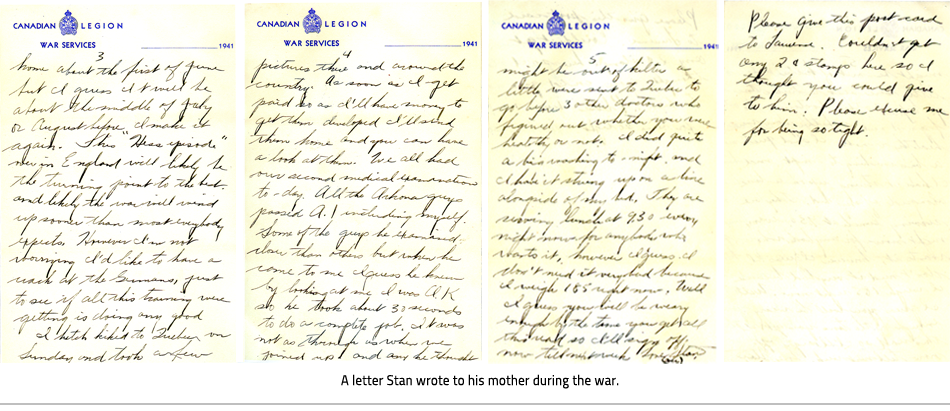 CANADIAN LEGION
WAR SERVICES
1941
3
home about the first of June
but I guess it will be
about the middle of July
or August before I make it
again. This "Hess episode"
now in England will likely be
the turning point to the best
and likely the war will wind
up sooner than most everybody
expects. However I'm not
worrying I'd like to have a
crack at the Germans, just
to see if all this training were
getting is doing any good
I hitch hiked to on
Sunday and took a few
CANADIAN LEGION
WAR SERVICES
1941
4
pictures there and around the
country. As soon as I get
paid so as I'll have money to
get them developed I'll send
them home and you can have
a look at them. We all had
our second medical examanations
to-day. All the Arkona guys
passed A.1 including myself.
Some of the guys he examined
closer than others but when he
come to me I guess he knew
by looking at me I was O.K
so he took about 30 seconds
to do a complete job. It was
not as through as when we
joined up and any he thought
CANADIAN LEGION
WAR SERVICES
1941
5
might be out of kilter a
little were sent to to
go before 3 other doctors who
figured out whether you were
healthy or not. I did quite
a bit washing to-night. and
I have it strung up on a line
alongside of my bed. They are
serving lunch at 9.30 every
night now for anybody who
wants it, however I guess I
don't need it very bad because
I weigh 185 right now. Well
I guess you will be weary
enough by the time you get all
this read so I'll sign off
now till next week Love Stan
Please give this post-card
to . Couldn't get
any 2 ¢ stamps here so I
thought you could give
to him. Please excuse me
for being so tight.
A letter Stan wrote to his mother during the war.